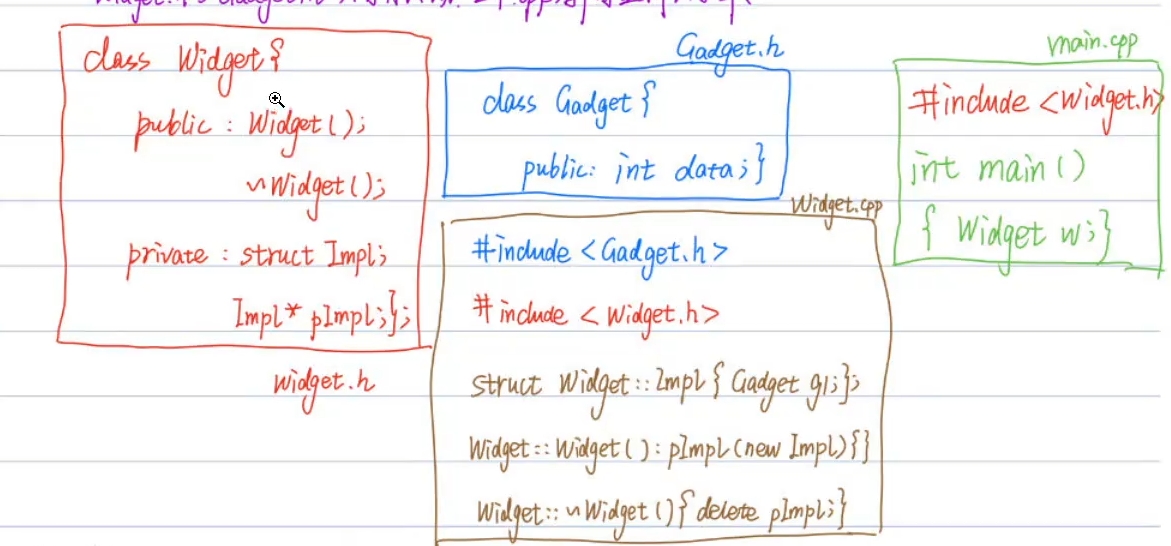 class Widget{
public : Widget();
~Widget();
private : struct Impl;
Impl* pImpl;};
widget.h
Gadget.h
class Gadget {
public: int data;}
Widget.cpp
#include <Gadget.h>
#include <Widget.h>
struct Widget::Impl { Gadget g1;};
Widget::Widget():pImpl(new Impl){}
Widget::~Widget(){ delete pImpl;}
main.cpp
#include <Widget.h>
int main()
{ Widget w;}